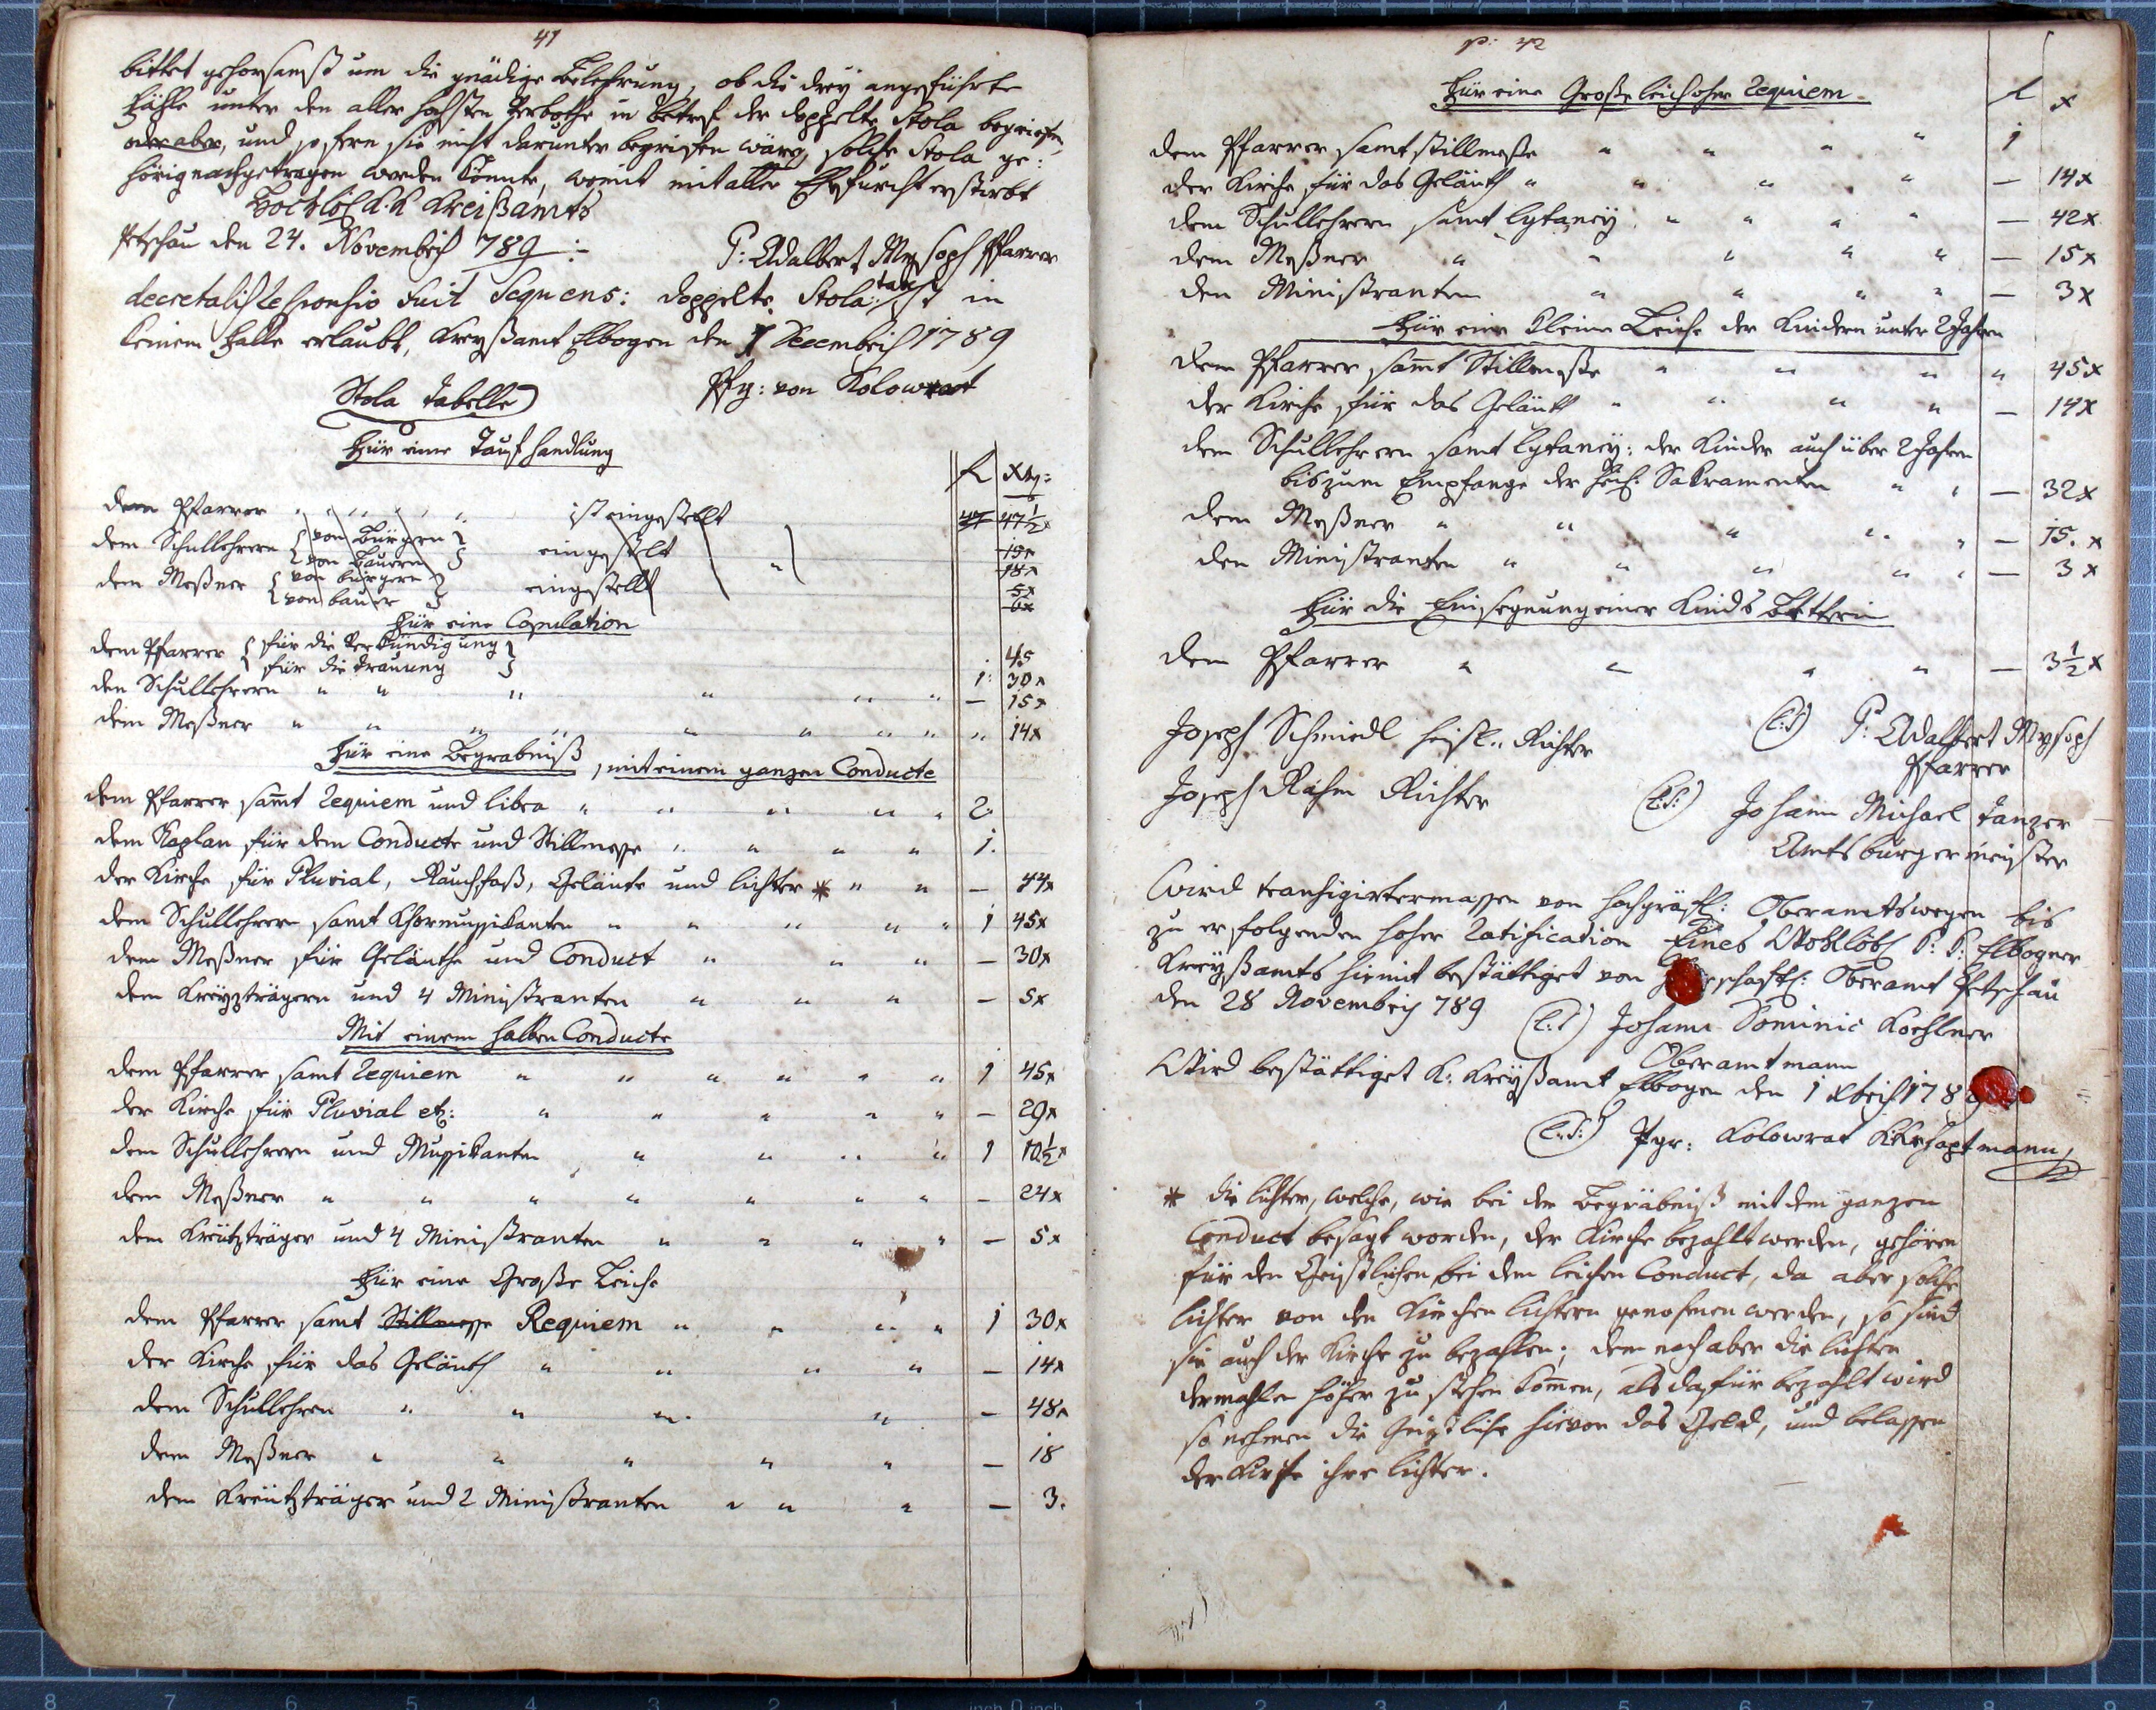 41
bittet gehorsamst um die gnädige Belehrung, ob die drey angeführte
Fähle unter den aller hochsten Verbothe in Betref der doppelte Stola begriefen
oder aber, und so fern sie nicht darunter begriffen wären, solche Stola ge:
hörig nachgetragen werden könnte, womit mit aller Ehrfurcht erstirbt
Hochlöbl. K.K. Kreißamts
Petschau den 24. Novembris 789 :-
P: Adalbert Mysoph Pfarrer
decretalis Responsio fuit Sequens: doppelte Stola tax ist in
keinem Falle erlaubt, Kreyßamt Elbogen den 1 Decembris 1789
Stola Tabelle
Phg: von Kolowrat
Für eine Tauf handlung
fl xrg:
dem Pfarrer " " " " " ist eingestellt 47 47½x
dem Schullehrern { von Bürgern } 15x
{ von Bauern } eingestelt " 18x
dem Meßner { von bürgern } 5x
{ von bauer } eingestellt 6x
Für eine Copulation
dem Pfarrer { für die Verkündigung } 45
{ für die Trauung } 1: 30x
den Schullehrern " " " " " " — 15x
dem Meßner " " " " " " " " 14x
Für eine Begrabniß, mit einem ganzen Conducte
dem Pfarrer samt Requiem und libra " " " " " 2.
dem Kaplan für dem Conducte und Stillmesse " " " " 1.
der Kirche für Pluvial, Rauchfaß, Geläute und lichter * " " — 44x
dem Schullehrern samt Chormusikanten " " " " " 1 45x
dem Meßner für Geläuthe und Conduct " " " — 30x
dem Kreuzträgern und 4 Ministranten " " " — 5x
Mit einem halben Conducte
dem Pfarrer samt Requiem " " " " " " 1 45x
der Kirche für Pluvial etz: " " " " " — 29x
dem Schullehrern und Musikanten " " " " 1 10½x
dem Meßner " " " " " " " — 24x
dem Kreutzträger und 4 Ministranten " " " " — 5x
Für eine Große Leiche
dem Pfarrer samt Stillmesse Requiem " " " " 1 30x
der Kirche für das Geläuth " " " " — 14x
dem Schullehrern " " " " — 48x
dem Meßner " " " " " — 18
dem Kreutzträger und 2 Ministranten " " " — 3.
p: 42
Für eine Große leich ohne Requiem
fl x
dem Pfarrer samt stillmesse " " " " 1
der Kirche für das Geläuth " " " " — 14x
dem Schullehrern samt lytaney " " " " — 42x
dem Meßner " " " " " — 15x
den Ministranten " " " " — 3x
Für eine Kleine Leiche der Kindern unter 2 Jahren
dem Pfarrer samt Stillmesse " " " " 45x
der Kirche für das Geläuth " " " " — 14x
dem Schullehrern samt lytaney: der Kinder auch über 2 Jahren
bis zum Empfange der heil: Sakramenten " " — 32x
dem Meßner " " " " " — 15. x
den Ministranten " " " " " — 3x
Für die Einsegnung einer Kinds Betterin
dem Pfarrer " " " " — 3½x
Joseph Schmiedl Richter
(L:S) P: Adalbert Mysoph
Pfarrer
Joseph Rahm Richter
(L:S:) Johann Michael Tanzer
Amtsburgermeister
Wird transigirtermassen von hochgräfl: Oberamtswegen bis
zu erfolgenden hoher Ratification Eines Wohllöbl P: P: Elbogner
Kreyßamts hiemit bestättiget von Herrschaftl: Oberamt Petschau
den 28 Novembris 789
(L:S) Johann Dominic Koehlner
Oberamtmann
Wird bestättiget K: Kreyßamt Elbogen den 1 Xbris 1789
(L:S:) Pgr: Kolowrat KKrhaptmann,
* die lichter, welche, wie bei der Begräbniß mit dem ganzen
Conduct besagt worden, der Kirche bezahlt werden, gehören
für den Geistlichen bei dem leichen Conduct, da aber solche
lichter von den Kirchen lichtern genohmen werden, so sind
sie auch der Kirche zu bezahlen; dem nach aber die lichter
dermahlen höher zu stehen kommen, als dafür bezahlt wird
so nehmen die Geistliche hievon das Geld, und belassen
der Kirche ihre lichter.